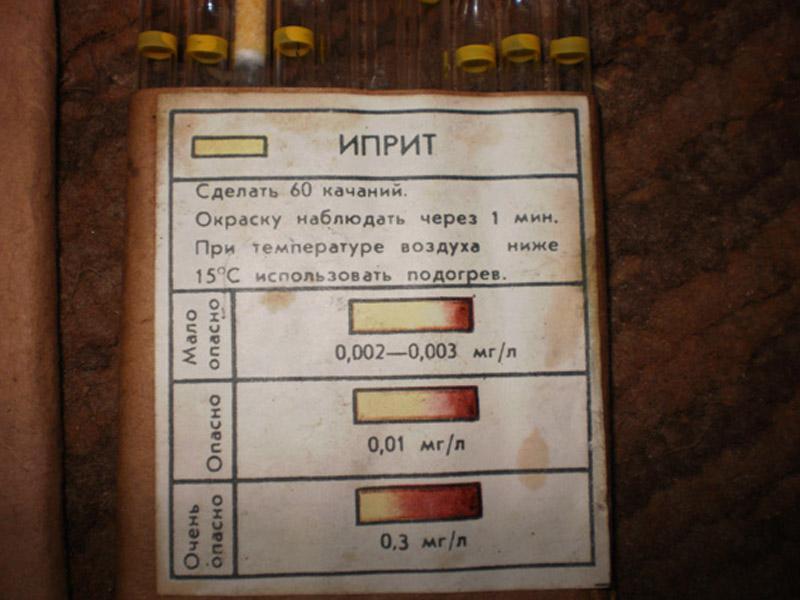 ИПРИТ
Сделать 60 качаний.
Окраску наблюдать через 1 мин.
При температуре воздуха ниже
15°С использовать подогрев.
Мало
опасно
0,002—0,003 мг/л
Опасно
0,01 мг/л
Очень
опасно
0,3 мг/л